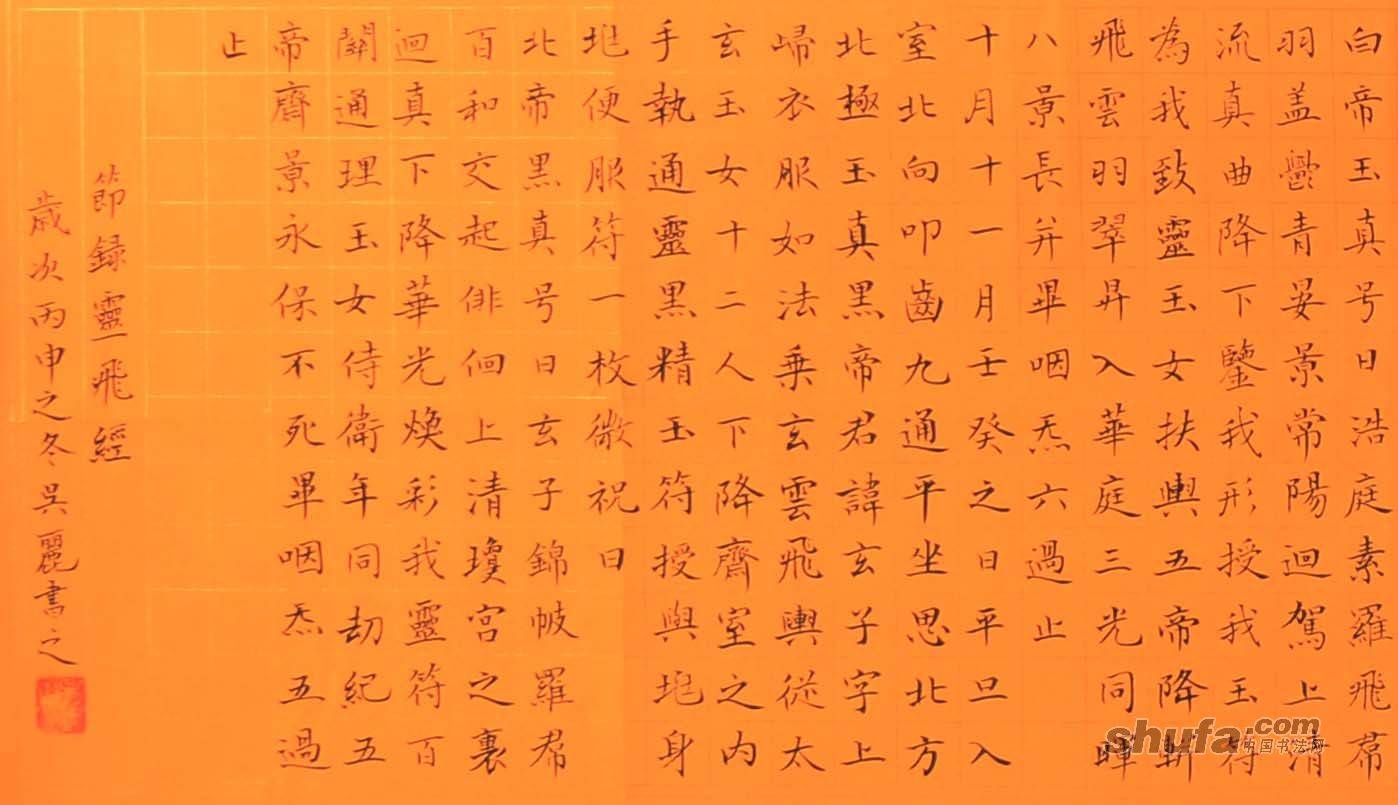 白帝玉真号曰浩庭素羅飛帬
羽盖鬱青晏景常陽迴駕上清
流真曲降下鑒我形授我玉符
為我致靈玉女扶輿五帝降軿
飛雲羽翠昇入華庭三光同暉
八景長并畢咽炁六過止
十月十一月壬癸之日平旦入
室北向叩齒九通平坐思北方
北極玉真黑帝君諱玄子字上
歸衣服如法乗玄雲飛輿從太
玄玉女十二人下降齋室之内
手執通靈黑精玉符授與兆身
兆便服符一枚微祝曰
北帝黑真号曰玄子錦帔羅帬
百和交起俳佪上清瓊宫之裏
迴真下降華光煥彩我靈符百
關通理玉女侍衛年同劫紀五
帝齊景永保不死畢咽炁五過
止
節録靈飛經
歲次丙申之冬吴麗書之
shufa.com
中国书法网